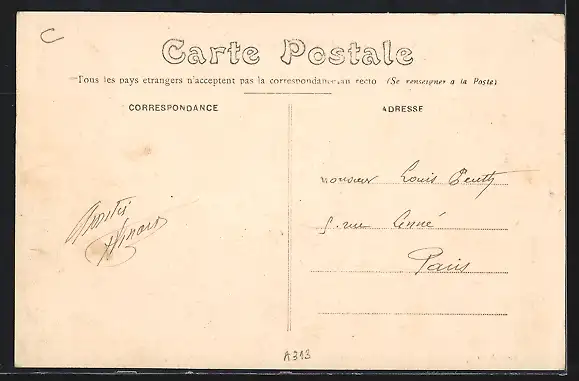 C
Carte Postale
Tous les pays etrangers n'acceptent pas la correspondance au recto (Se renseigner a la Poste)
CORRESPONDANCE
ADRESSE
Monsieur Louis
5 rue Linné
Paris
Amitiés
A313